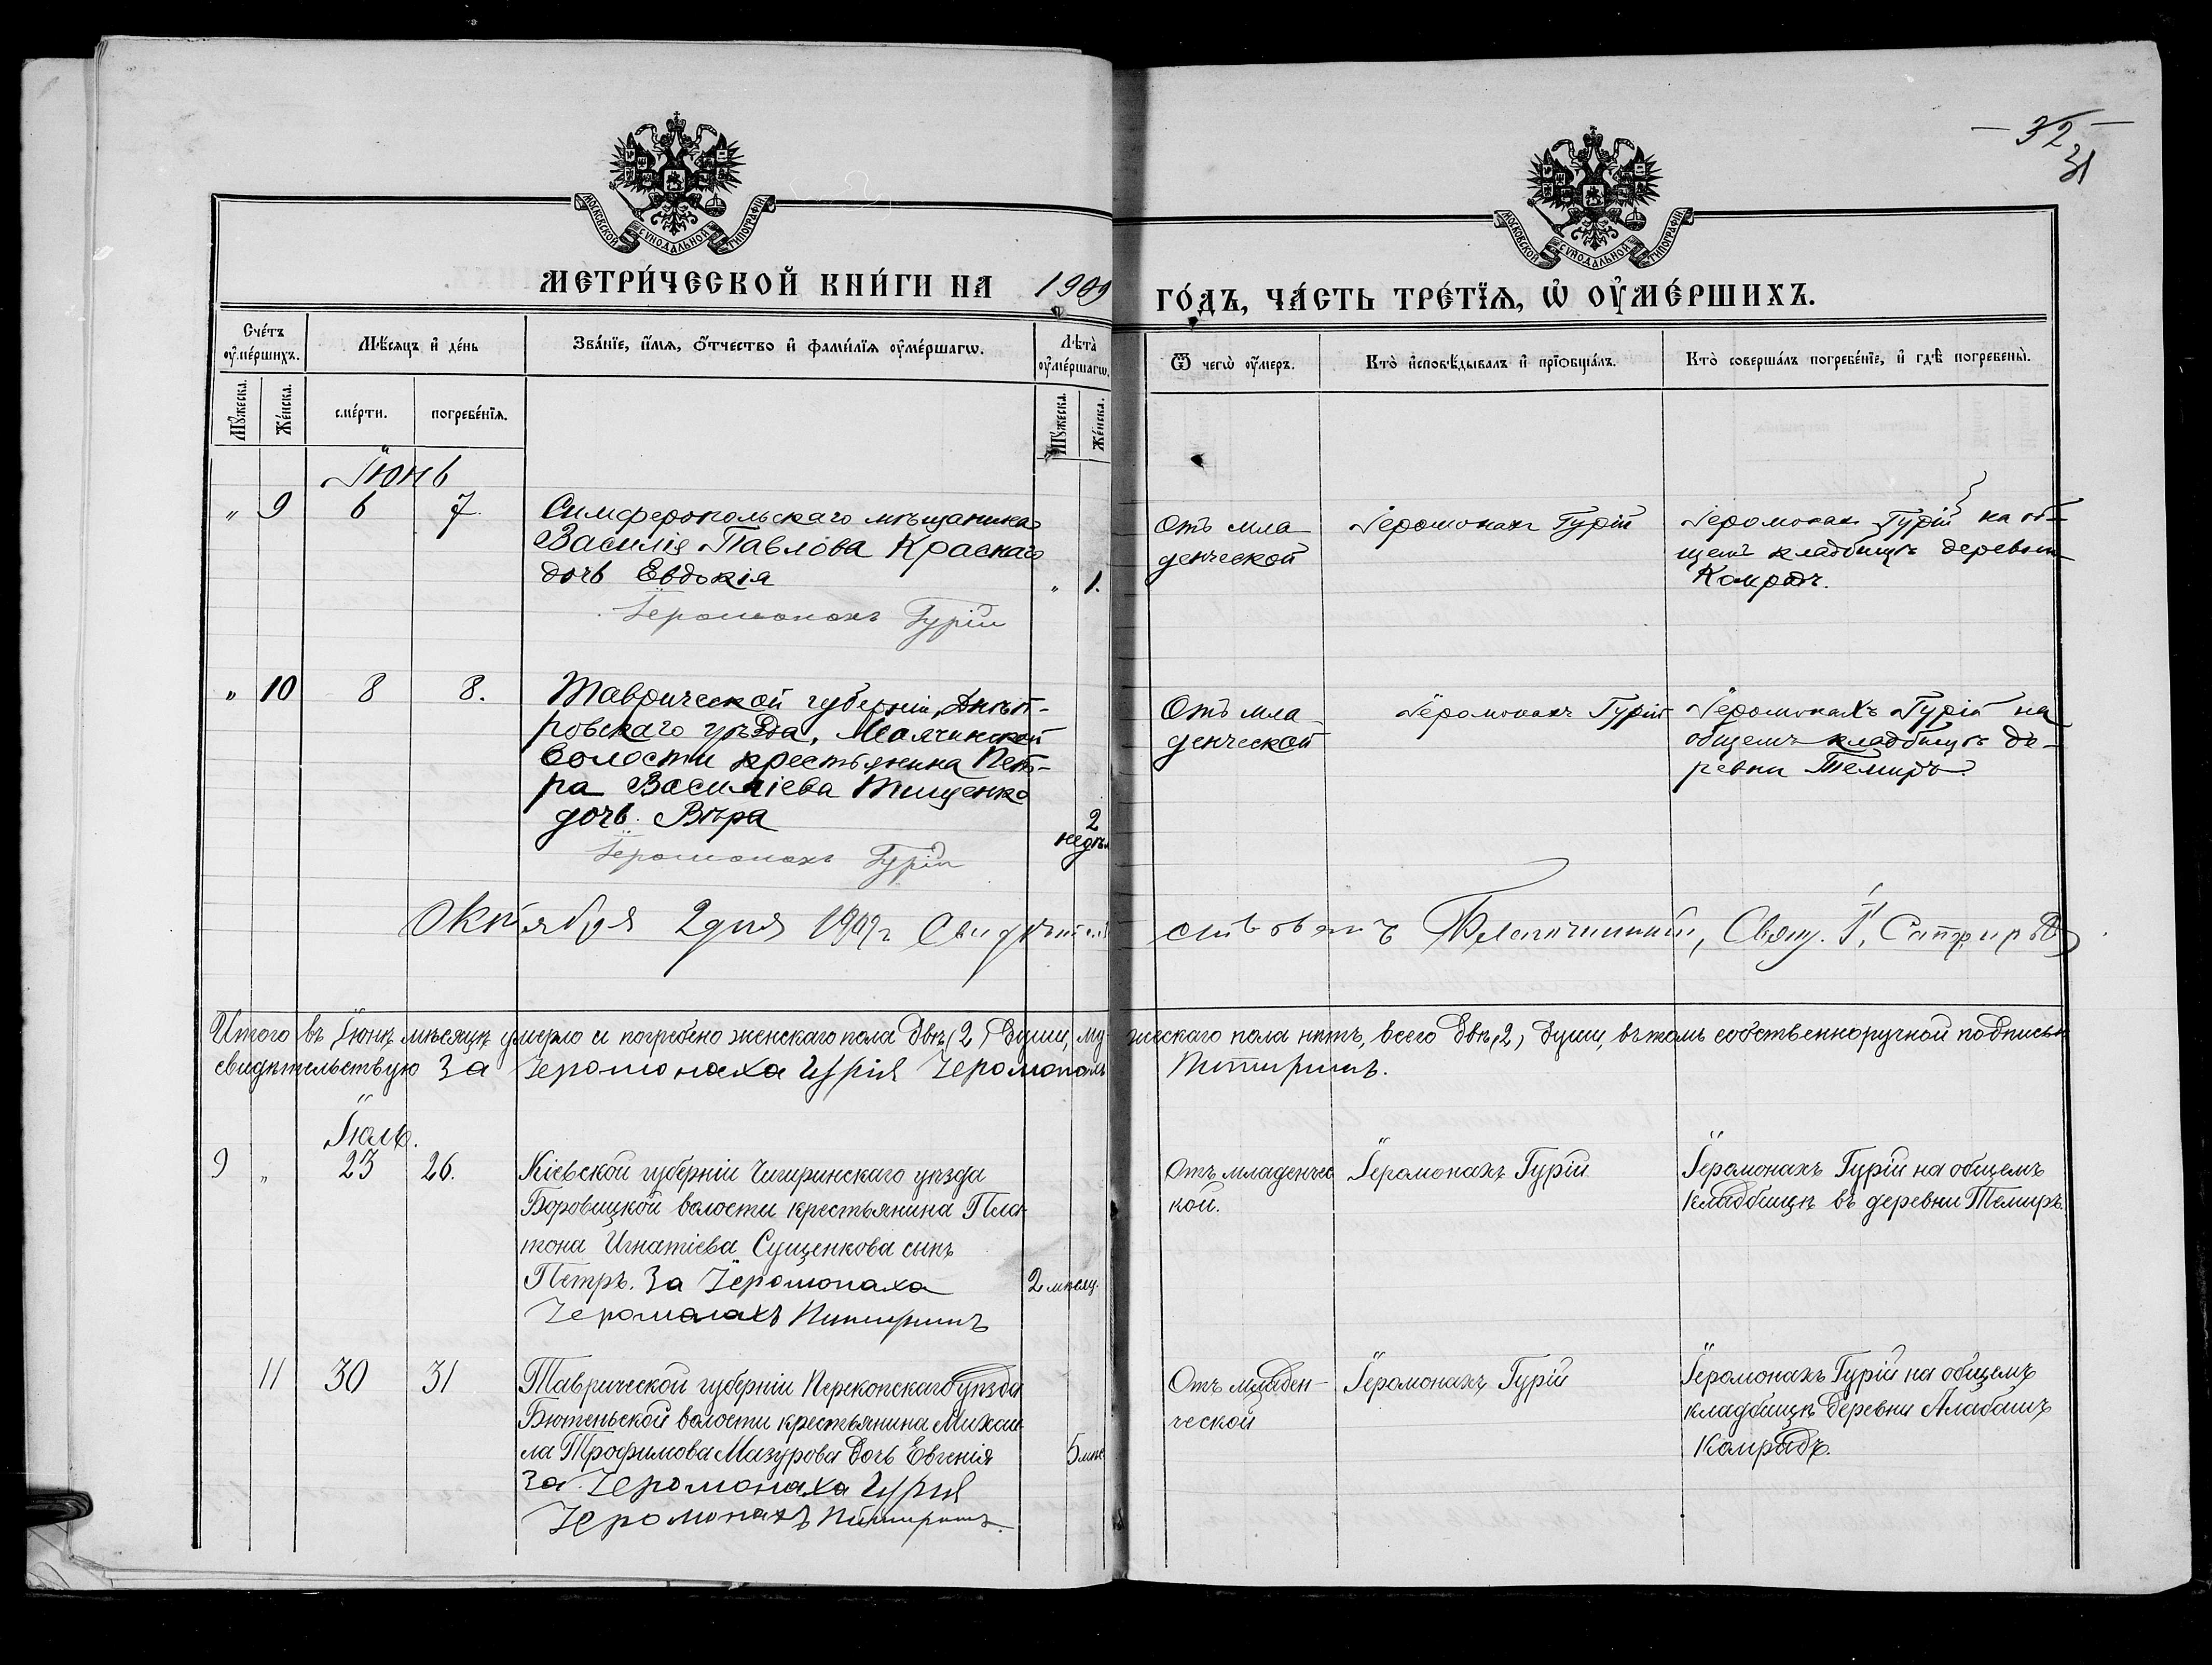 — 32 —
31
МОСКОВСКОЙ СѴНОДАЛЬНОЙ ТИПОГРАФІИ
МОСКОВСКОЙ СѴНОДАЛЬНОЙ ТИПОГРАФІИ
МЕТРИ́ЧЕСКОЙ КНИ́ГИ НА 1909 ГО́ДЪ, ЧА́СТЬ ТРЕ́ТЇѦ, Ѡ҆ ОУ҆МЕ́РШИХЪ.
Сче́тъ оу҆ме́ршихъ.
Мѣ́сяцъ и҆ де́нь
Зва́нїе, и҆́мѧ, ѻ҆́тчество и҆ фами́лїѧ оу҆ме́ршагѡ.
Лѣ́та оу҆ме́ршагѡ.
Ѿ чегѡ̀ оу҆́меръ.
Кто̀ и҆сповѣ́дывалъ и҆ прїѻбща́лъ.
Кто̀ соверша́лъ погребе́нїе, и҆ гдѣ̀ погребены̀.
Мꙋ́жеска.
Же́нска.
сме́рти.
погребе́нїѧ.
Мꙋ́жеска.
Же́нска.
Іюнь
" 9 6 7.
Симферопольскаго мѣщанина
Василія Павлова Краснаго
дочь Евдокія
" 1.
Іеромонахъ Гурій
Отъ мла-
денческой
Іеромонахъ Гурій
Іеромонахъ Гурій на об-
щемъ кладбищѣ деревни
Комрадъ.
" 10 8 8.
Таврической губерніи, Днѣп-
ровскаго уѣзда,
волости крестьянина Пет-
ра Василіева Тищенко
дочь Вѣра
2
недѣл
Іеромонахъ Гурій
Отъ мла-
денческой
Іеромонахъ Гурій
Іеромонахъ Гурій на
общемъ кладбищѣ де-
ревни Темиръ.
Октября 2 дня 1909 г Свидѣтельствовалъ Благочинный, Свящ. І.
Итого въ Іюнѣ мѣсяцѣ умерло и погребено женскаго пола двѣ (2) души, мужескаго пола нѣтъ, всего двѣ (2) души, въ томъ собственноручной подписью
свидѣтельствую За Іеромонаха Гурія Іеромонахъ Питиримъ.
Іюль.
9 " 23 26.
Кіевской губерніи Чигиринскаго уѣзда
Боровицкой волости крестьянина Пла-
тона Игнатіева Сущенкова сынъ
Петръ. За Іеромонаха
Іеромонахъ Питиримъ
2 мѣсяц.
Отъ младенчес
кой.
Іеромонахъ Гурій
Іеромонахъ Гурій на общемъ
кладбищѣ въ деревни Темиръ.
11 30 31
Таврической губерніи Перекопскаго уѣзда
Бютеньской волости крестьянина Михаи-
ла Трофимова Мазурова дочь Евгенія
За Іеромонаха Гурія
Іеромонахъ Питиримъ.
5 мѣс
Отъ младен-
ческой
Іеромонахъ Гурій
Іеромонахъ Гурій на общемъ
кладбищѣ деревни Алабашъ
Комрадъ.